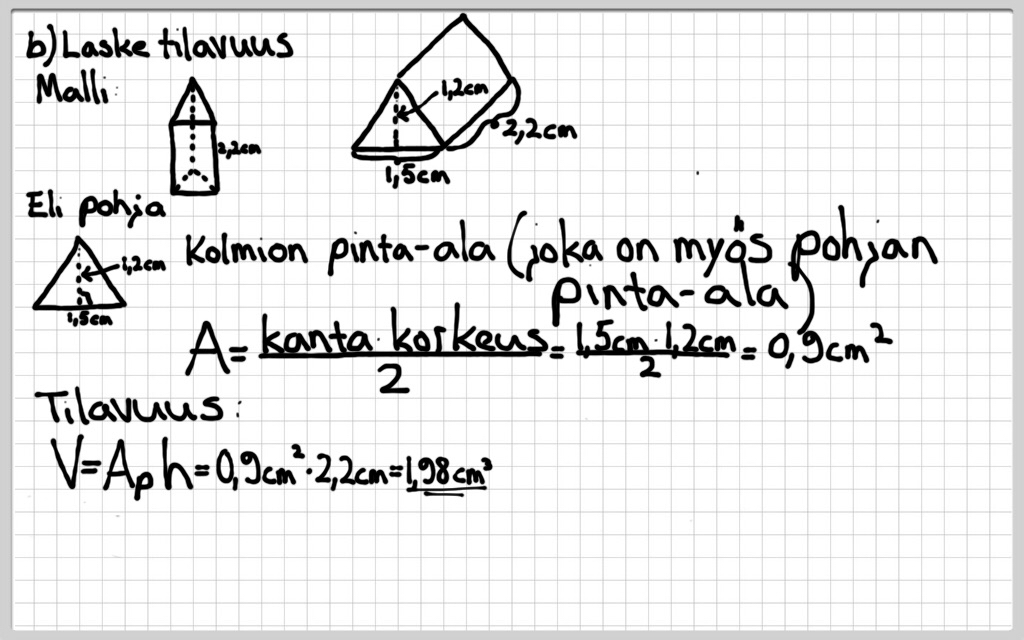 b) Laske tilavuus
Malli:
2,2cm
1,2cm
2,2cm
1,5cm
Eli pohja
1,2cm
1,5cm
Kolmion pinta-ala (joka on myös pohjan
pinta-ala)
A = kanta · korkeus / 2 = 1,5cm · 1,2cm / 2 = 0,9cm²
Tilavuus:
V = Aₚh = 0,9cm² · 2,2cm = 1,98cm³